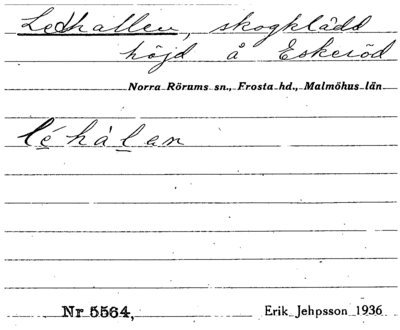 Ledhallen, skogklädd
höjd å Eskeröd
Norra Rörums sn., Frosta hd., Malmöhus län
léhàlan
Nr 5564, Erik Jehpsson 1936